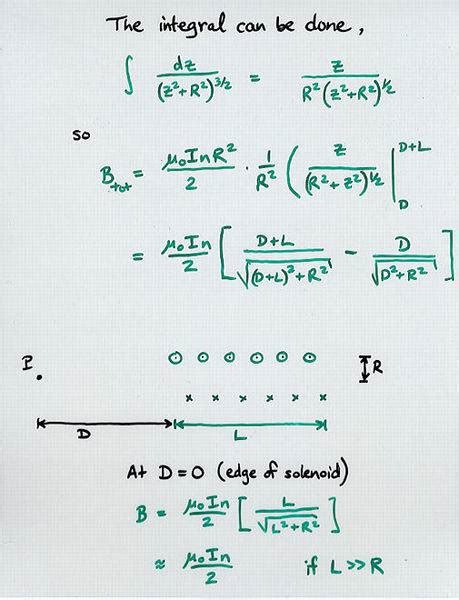 The integral can be done,
∫ dz / (z²+R²)^3/2 = z / R²(z²+R²)^1/2
so
B_tot = μ₀InR² / 2 · 1 / R² ( z / (R²+z²)^1/2 |_D^D+L
= μ₀In / 2 [ D+L / √(D+L)²+R² − D / √D²+R² ]
P.
R
D
L
At D=0 (edge of solenoid)
B = μ₀In / 2 [ L / √L²+R² ]
≈ μ₀In / 2 if L>>R